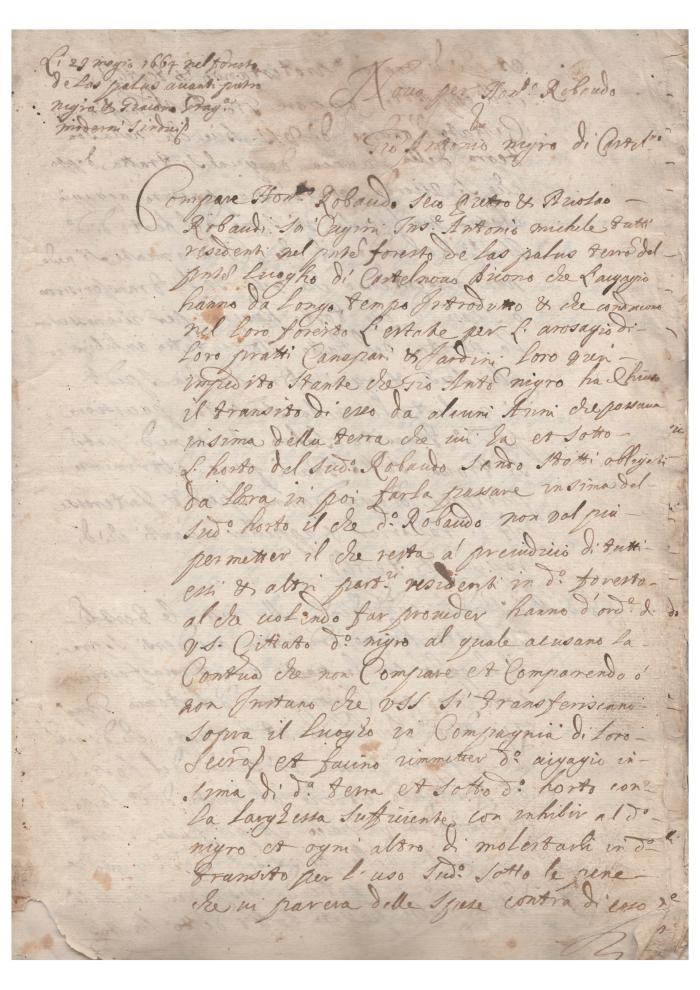 Li 29 magio 1667 nel foresto
de las palus avanti
nigro &
moderni sindici
Nova per Hon.to Robaudo
Gio Antonio nigro di Castel.o
Compare Hon.to Robaudo seco pietro &
Robaudi soi Antonio michele tutti
residenti nel pnte foresto de las palus terro del
pnte Luogho di Castelnovo dicono che
hanno da longo tempo Introdutto & che conducono
nel loro foresto L'estate per L' arosagio di
loro pratti Canapari & Jardini loro vien
impedito stante che gio Ant.o nigro ha
il transito di esso da alcuni Anni che passava
insima della terra che ivi ha et sotto
L' horto del sud.o Robaudo sendo statti obligati
da in poi farla passare insima del
sud.o horto il che d.o Robaudo non vol piu
permetter il che resta a' prejudicio di tutti
essi & altri part.ri residenti in d.o foresto
al che volendo far proveder hanno d'ord.e di
V.S. Cittato d.o nigro al quale acusano la
Contua che non Compare et Comparendo o'
non Instano che VSS si transferiscano
sopra il Luogho in Compagnia di loro
et facino rimmetter d.o in-
sima di d.a terra et sotto d.o horto con
la Larghessa sufficiente con inhibir al d.o
nigro et ogni altro di molestarli in d.o
transito per l'uso sud.o sotto le pene
che vi parera delle spese contra di esso